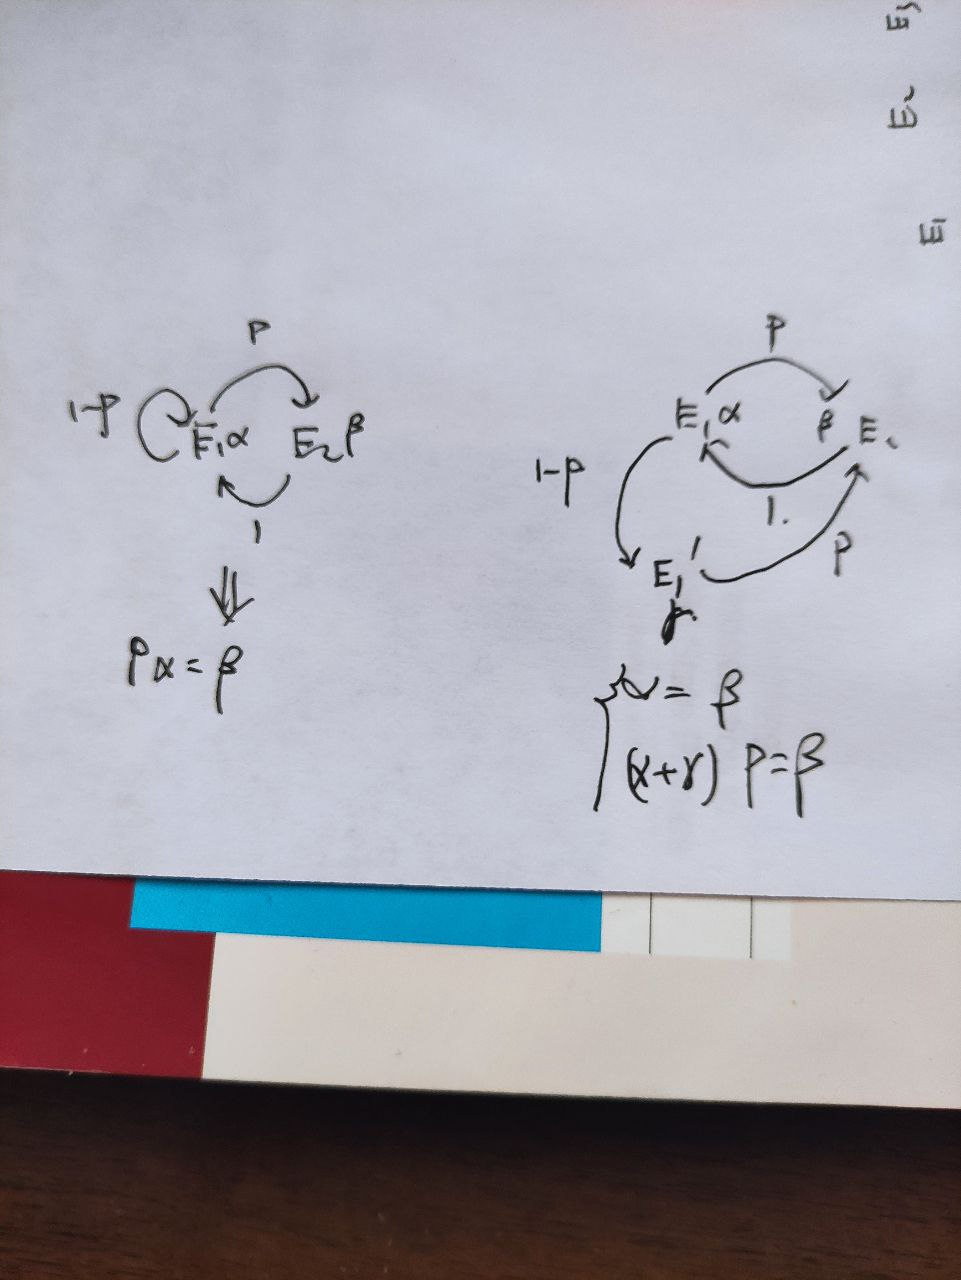 E3
E2
E1
P
1-P
E1α
E2β
1
⇓
Pα=β
P
E1α
β
E2
1-P
1.
P
E1'
γ
{α=β
(α+γ)P=β